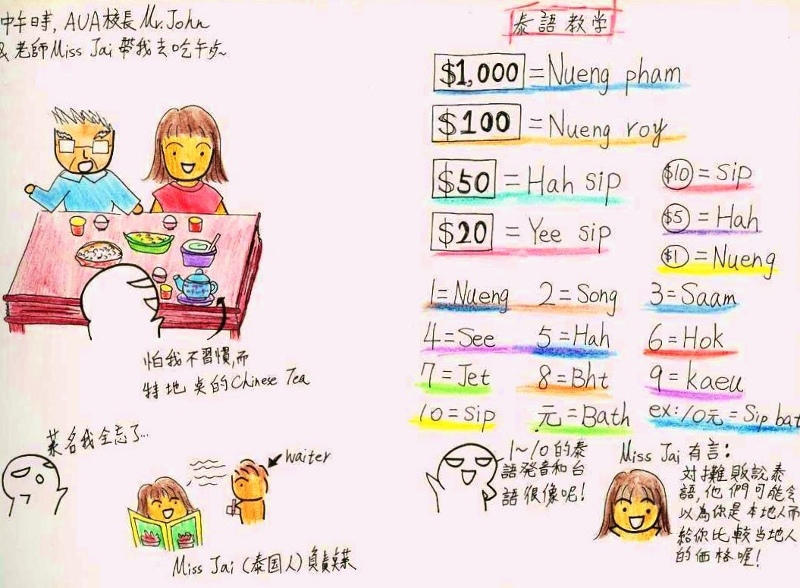 中午時, AUA校長 Mr. John
& 老師 Miss Jai 帶我去吃午餐~
怕我不習慣,而
特地點的 Chinese Tea
菜名我全忘了...
waiter
Miss Jai (泰国人) 負責點菜
泰語教学
$1,000 = Nueng pham
$100 = Nueng roy
$50 = Hah sip
$10 = Sip
$20 = Yee sip
$5 = Hah
$1 = Nueng
1 = Nueng 2 = Song 3 = Saam
4 = See 5 = Hah 6 = Hok
7 = Jet 8 = Bht 9 = kaeu
10 = Sip 元 = Bath ex: 10元 = Sip bat
1~10的泰
語発音和台
語很像呢!
Miss Jai 有言:
対攤販說泰
語,他們可能会
以為你是本地人而
給你比較当地人
的価格喔!